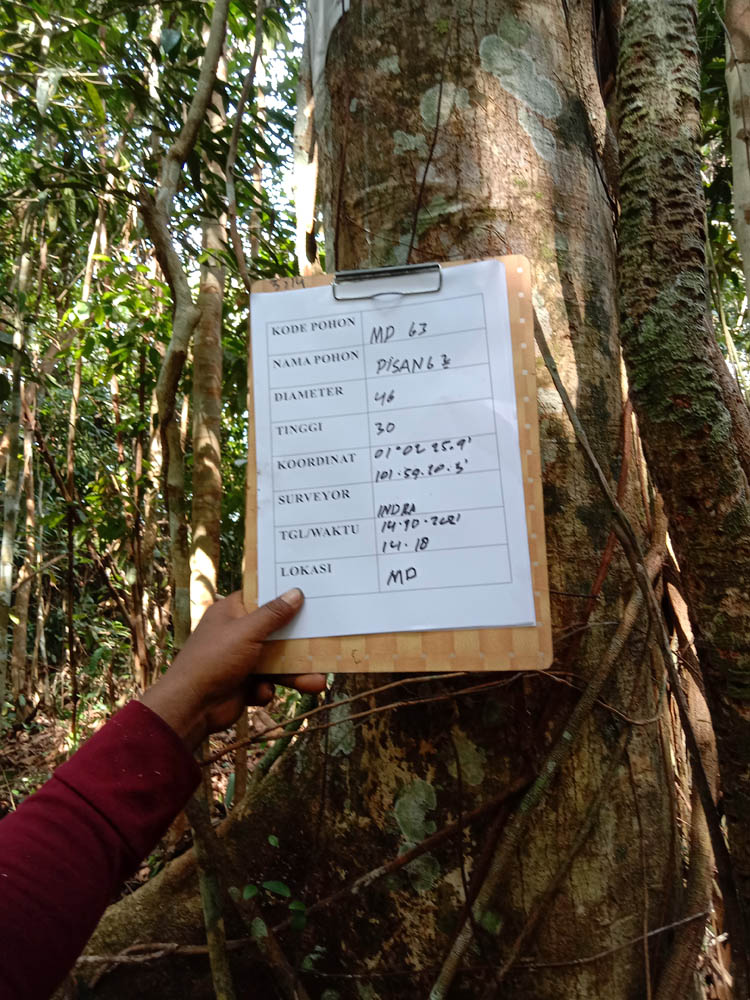 KODE POHON MD 63
NAMA POHON PISANG 2
DIAMETER 46
TINGGI 30
KOORDINAT 01°02 25.9'
101.59.20.3'
SURVEYOR INDRA
TGL/WAKTU 14.10.2021
14.18
LOKASI MD